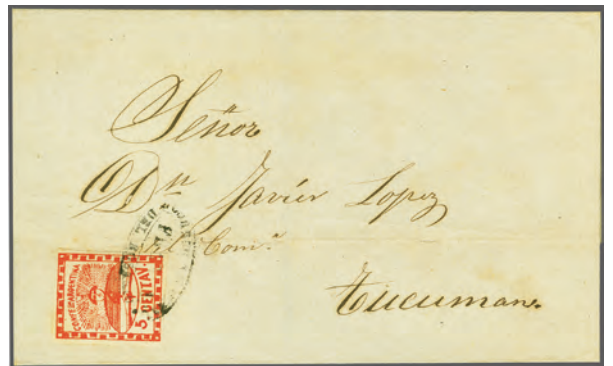 Señor
Dn Javier Lopez
Com.a
Tucuman.
CONFEON ARGENTINA
5 CENTAV.